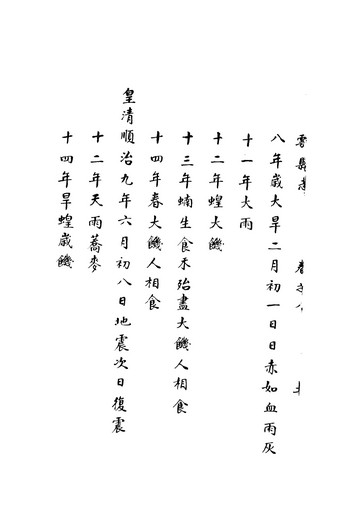 八年歲大旱二月初一日日赤如血雨灰
十一年大雨
十二年蝗大饑
十三年蝻生食禾殆盡大饑人相食
十四年春大饑人相食
皇清順治九年六月初八日地震次日復震
十二年天雨蕎麥
十四年旱蝗歲饑